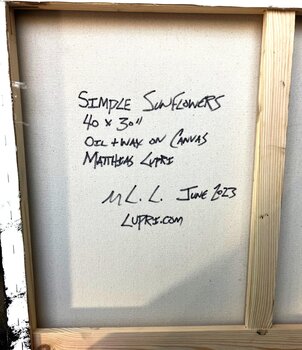 SIMPLE SUNFLOWERS
40 x 30"
OIL + WAX ON CANVAS
MATTHIAS LUPRI
M L. L. JUNE 2023
LUPRI.COM